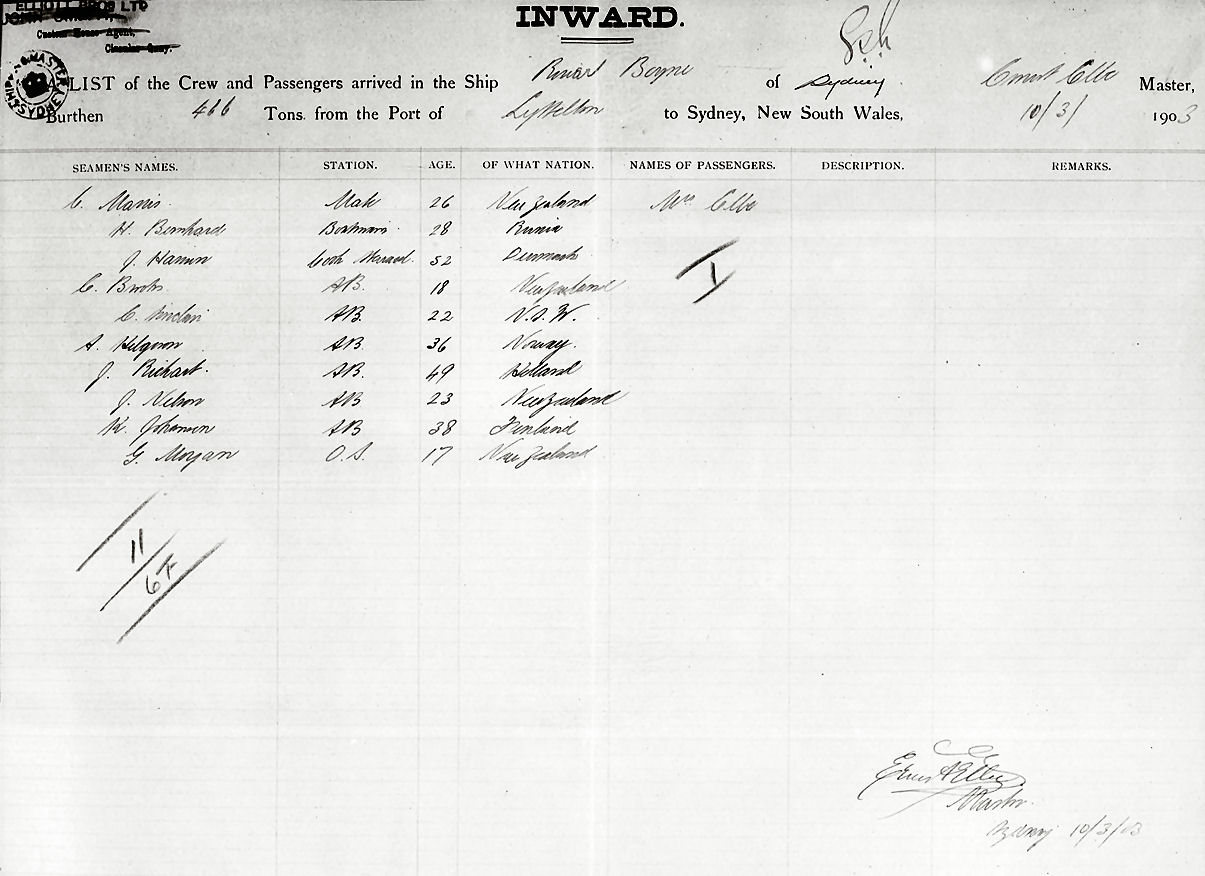 ELLIOTT BROS LTD
Custom House Agent,
Circular Quay.
INWARD.
A LIST of the Crew and Passengers arrived in the Ship River Boyne of Sydney Ernest Elbe Master,
Burthen 466 Tons. from the Port of Lyttelton to Sydney, New South Wales, 10/3/ 1903
SEAMEN'S NAMES. STATION. AGE. OF WHAT NATION. NAMES OF PASSENGERS. DESCRIPTION. REMARKS.
C. Mate 26 New Zealand Mrs Elbe
H. Bernhard Boatswain 28 Russia
J. Cook Steward 52 Denmark
C. AB. 18 New Zealand
C. Sinclair AB. 22 N.S.W.
A. AB 36 Norway.
J. Richart. AB. 49 Holland
J. Nelson AB 23 New Zealand
K. Johansen AB 38 Finland
G. Morgan O.S. 17 New Zealand
1
11
6F
Master
Sydney 10/3/03